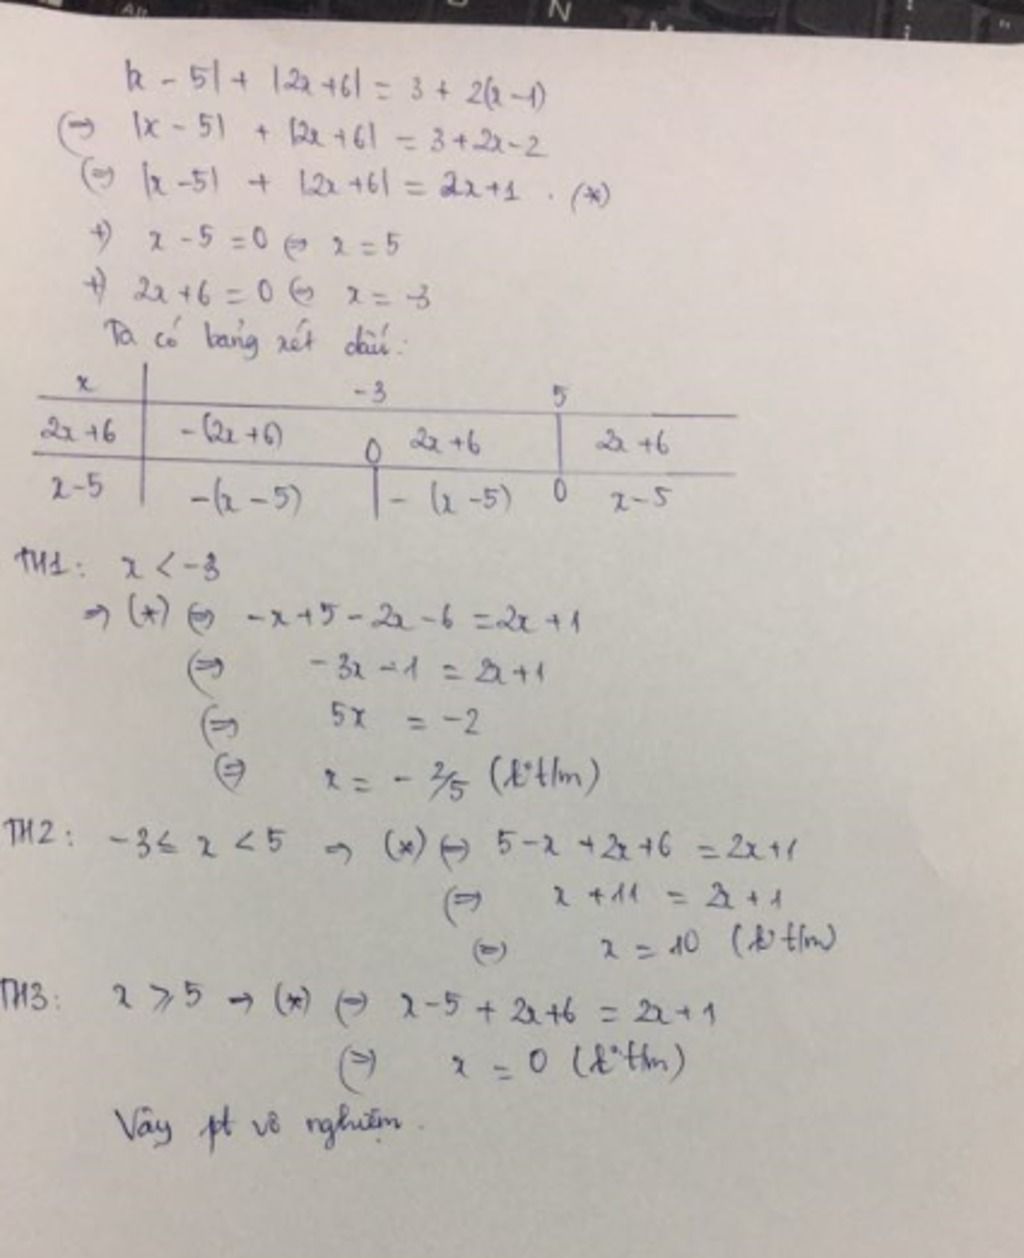 |x - 5| + |2x + 6| = 3 + 2(x - 1)
⇔ |x - 5| + |2x + 6| = 3 + 2x - 2
⇔ |x - 5| + |2x + 6| = 2x + 1 . (*)
+) x - 5 = 0 ⇔ x = 5
+) 2x + 6 = 0 ⇔ x = -3
Ta có bảng xét dấu:
x -3 5
2x + 6 -(2x + 6) 0 2x + 6 2x + 6
x - 5 -(x - 5) - (x - 5) 0 x - 5
TH1: x < -3
⇒ (*) ⇔ -x + 5 - 2x - 6 = 2x + 1
⇔ -3x - 1 = 2x + 1
⇔ 5x = -2
⇔ x = - 2/5 (k° t/m)
TH2: -3 ≤ x < 5 ⇒ (*) ⇔ 5 - x + 2x + 6 = 2x + 1
⇔ x + 11 = 2x + 1
⇔ x = 10 (k° t/m)
TH3: x ≥ 5 → (*) ⇔ x - 5 + 2x + 6 = 2x + 1
⇔ x = 0 (k° t/m)
Vậy pt vô nghiệm.